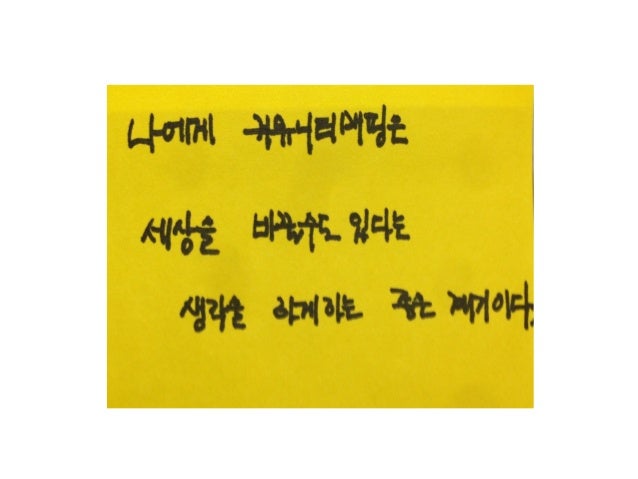 나에게 커뮤니티매핑은
세상을 바꿀수도 있다는
생각을 하게하는 좋은 계기이다.